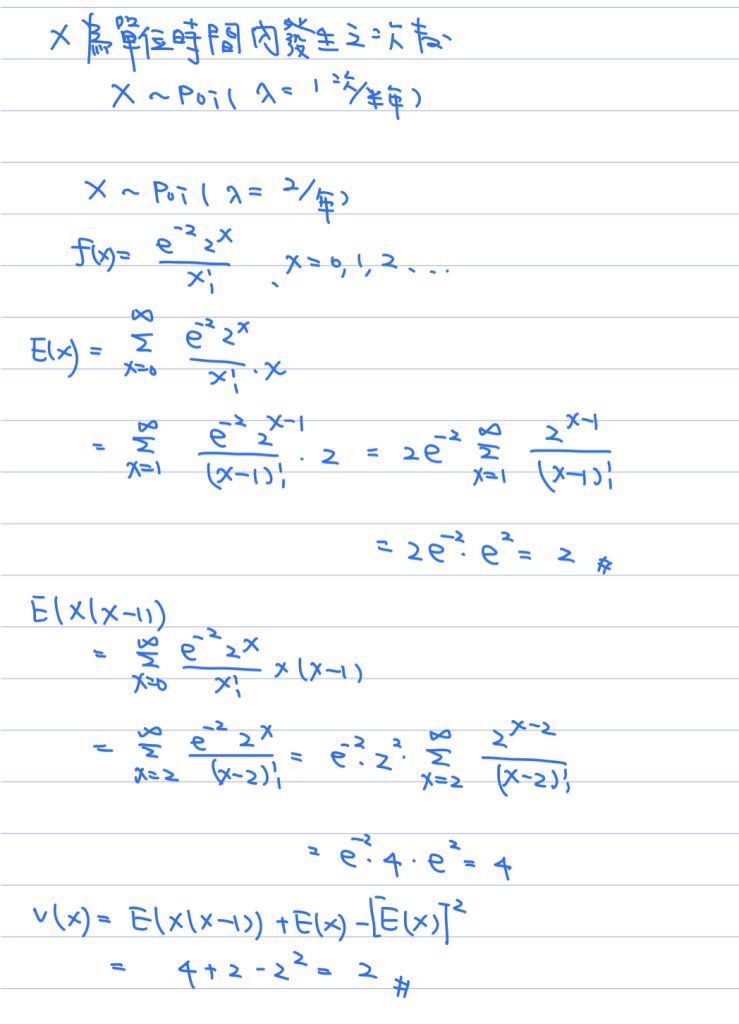 X 為單位時間內發生之次數
X ~ Poi( λ = 1次/半年)
X ~ Poi( λ = 2/年)
f(x) = e^{-2} 2^x / x! 、x = 0, 1, 2、...
E(x) = Σ_{x=0}^{∞} e^{-2} 2^x / x! · x
= Σ_{x=1}^{∞} e^{-2} 2^{x-1} / (x-1)! · 2 = 2e^{-2} Σ_{x=1}^{∞} 2^{x-1} / (x-1)!
= 2e^{-2} · e^2 = 2 #
E(x(x-1))
= Σ_{x=0}^{∞} e^{-2} 2^x / x! x(x-1)
= Σ_{x=2}^{∞} e^{-2} 2^x / (x-2)! = e^{-2} · 2^2 · Σ_{x=2}^{∞} 2^{x-2} / (x-2)!
= e^{-2} · 4 · e^2 = 4
V(x) = E(x(x-1)) + E(x) - [E(x)]^2
= 4 + 2 - 2^2 = 2 #